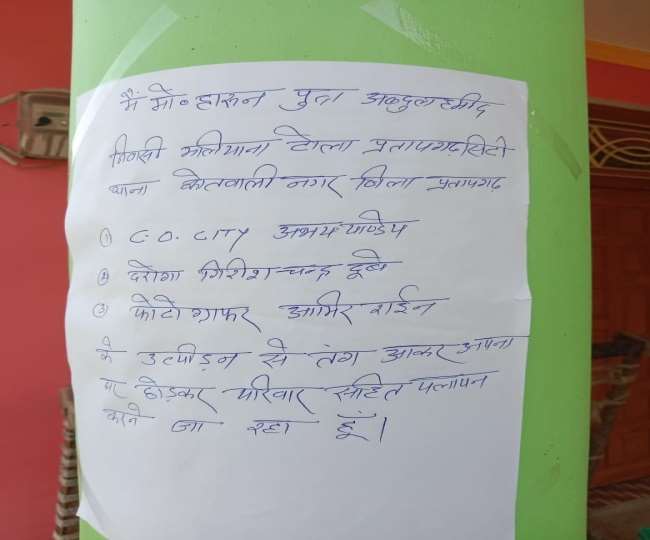 मैं मो० हारून पुत्र अब्दुल हमीद
निवासी मलियाना टोला प्रतापगढ़ सिटी
थाना कोतवाली नगर जिला प्रतापगढ़
① C.O. CITY अभय पाण्डेय
② दरोगा गिरीश चन्द्र दूबे
③ फोटोग्राफर आमिर राईन
के उत्पीड़न से तंग आकर अपना
घर छोड़कर परिवार सहित पलायन
करने जा रहा हूं।